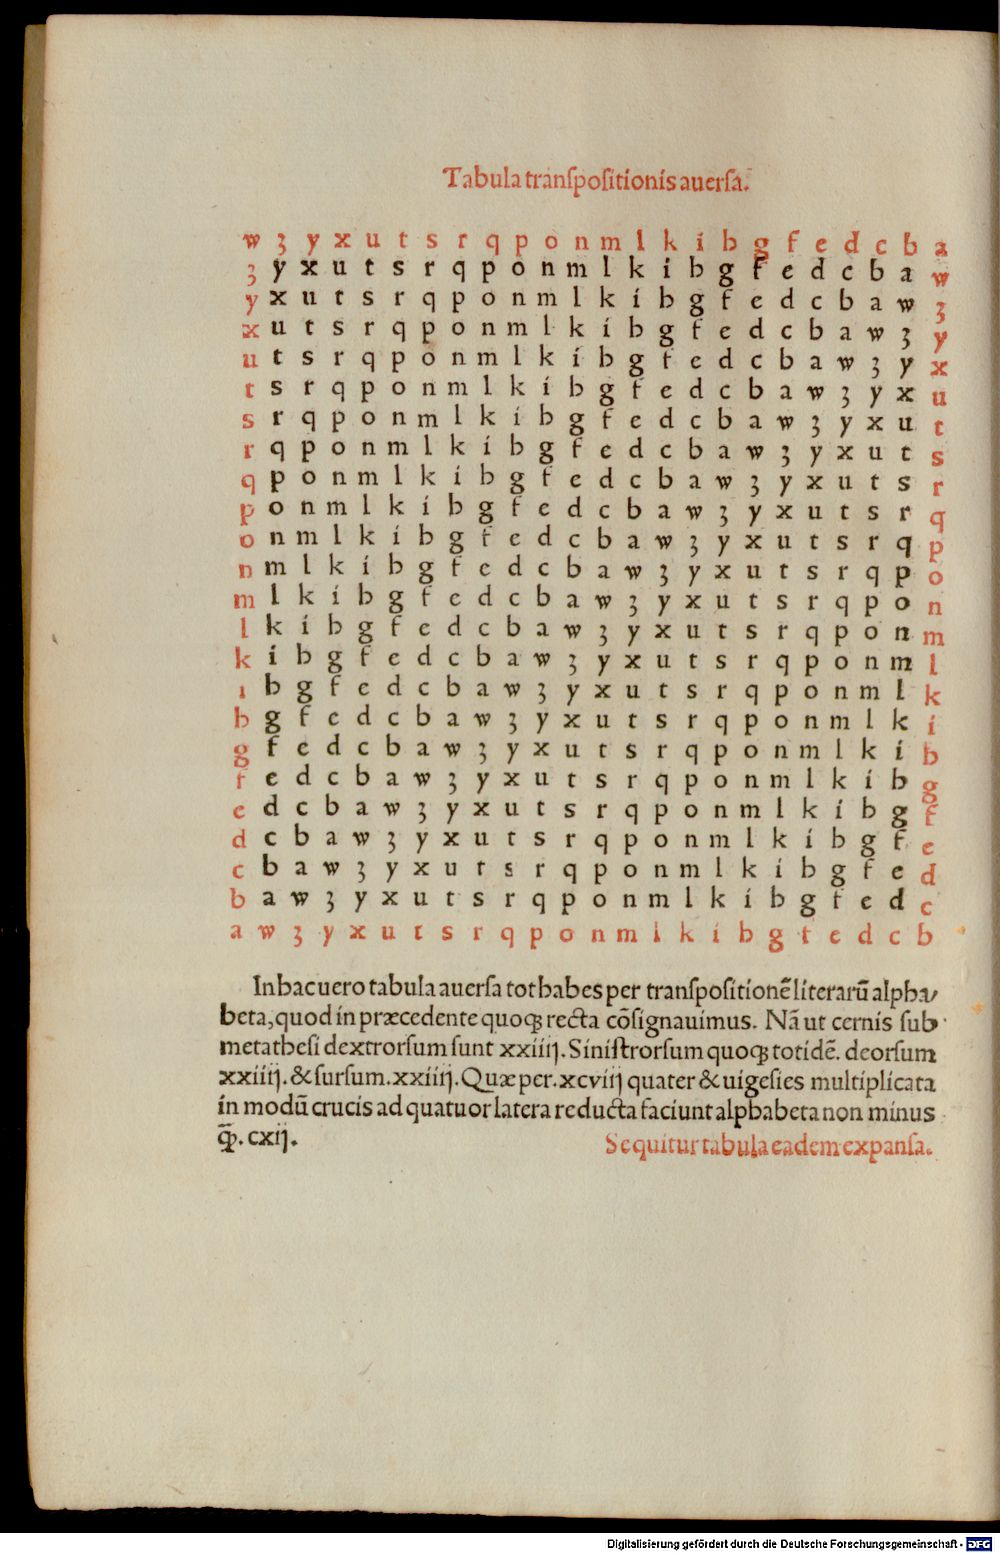 Tabula tranſpoſitionis auerſa.
w z y x u t s r q p o n m l k i h g f e d c b a
z y x u t s r q p o n m l k i h g f e d c b a w
y x u t s r q p o n m l k i h g f e d c b a w z
x u t s r q p o n m l k i h g f e d c b a w z y
u t s r q p o n m l k i h g f e d c b a w z y x
t s r q p o n m l k i h g f e d c b a w z y x u
s r q p o n m l k i h g f e d c b a w z y x u t
r q p o n m l k i h g f e d c b a w z y x u t s
q p o n m l k i h g f e d c b a w z y x u t s r
p o n m l k i h g f e d c b a w z y x u t s r q
o n m l k i h g f e d c b a w z y x u t s r q p
n m l k i h g f e d c b a w z y x u t s r q p o
m l k i h g f e d c b a w z y x u t s r q p o n
l k i h g f e d c b a w z y x u t s r q p o n m
k i h g f e d c b a w z y x u t s r q p o n m l
i h g f e d c b a w z y x u t s r q p o n m l k
h g f e d c b a w z y x u t s r q p o n m l k i
g f e d c b a w z y x u t s r q p o n m l k i h
f e d c b a w z y x u t s r q p o n m l k i h g
e d c b a w z y x u t s r q p o n m l k i h g f
d c b a w z y x u t s r q p o n m l k i h g f e
c b a w z y x u t s r q p o n m l k i h g f e d
b a w z y x u t s r q p o n m l k i h g f e d c
a w z y x u t s r q p o n m l k i h g f e d c b
In hac uero tabula auerſa tot habes per tranſpoſitionẽ literarũ alpha/
beta, quod in præcedente quoqꝫ recta cõſignauimus. Nã ut cernis ſub
metatheſi dextrorſum ſunt xxiiij. Siniſtrorſum quoqꝫ totidẽ. deorſum
xxiiij. & ſurſum. xxiiij. Quæ per. xcviij quater & uigeſies multiplicata
in modũ crucis ad quatuor latera reducta faciunt alphabeta non minus
q̃. cxij.
Sequitur tabula eadem expanſa.
Digitalisierung gefördert durch die Deutsche Forschungsgemeinschaft - DFG